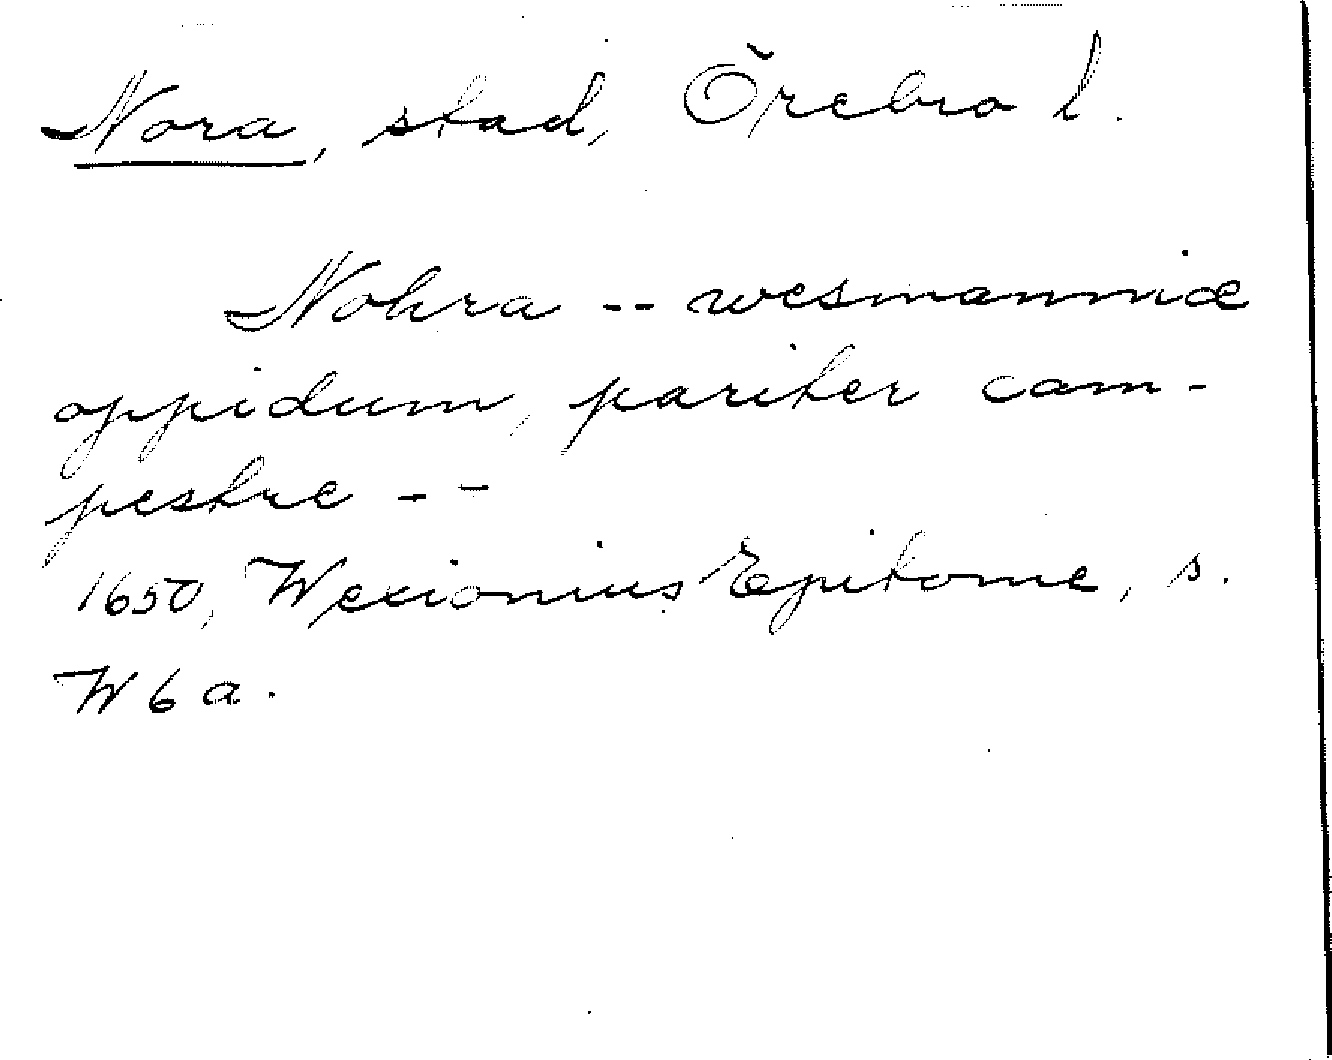 Nora, stad, Örebro l.
Nohra -- wesmanniæ
oppidum, pariter cam-
pestre --
1650, Wexionius Epitome, s.
W 6 a.